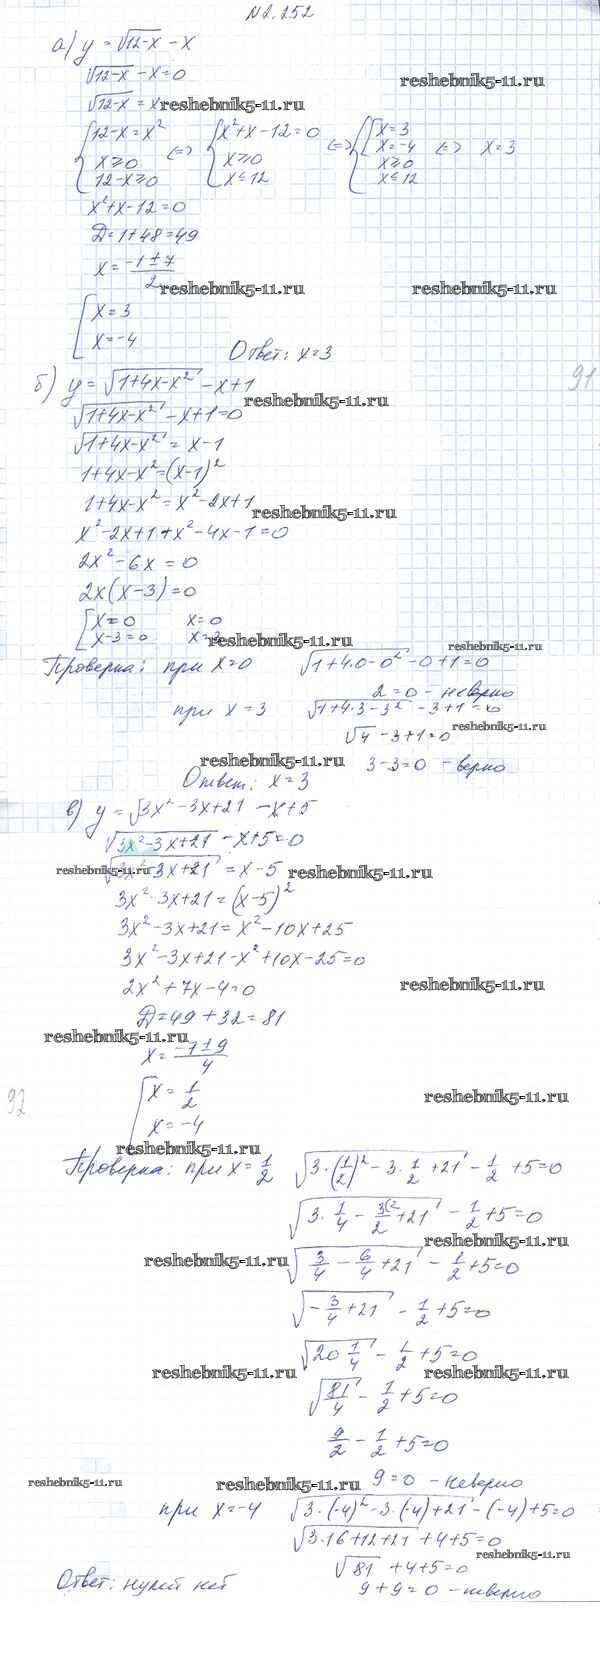 N 2.252
а) y = √12-x - x
√12-x - x = 0
√12-x = x reshebnik5-11.ru
reshebnik5-11.ru
{ 12-x = x² x ≥ 0 12-x ≥ 0 (=) { x²+x-12=0 x ≥ 0 x ≤ 12 (=) { [ x=3 x=-4 x ≥ 0 x ≤ 12 (=) x=3
x²+x-12=0
D=1+48=49
x = (-1±7)/2
reshebnik5-11.ru reshebnik5-11.ru
[ x=3
x=-4
Ответ: x=3
91
б) y = √1+4x-x² - x+1
reshebnik5-11.ru
√1+4x-x² - x+1=0
√1+4x-x² = x-1
1+4x-x²=(x-1)²
1+4x-x² = x²-2x+1
reshebnik5-11.ru
x²-2x+1+x²-4x-1=0
2x²-6x=0
2x(x-3)=0
[ x=0 x=0
x-3=0 x=3
reshebnik5-11.ru reshebnik5-11.ru
Проверка: при x=0 √1+4·0-0² -0+1=0
2=0 - неверно
при x=3 √1+4·3-3² -3+1=0
reshebnik5-11.ru
√4 -3+1=0
reshebnik5-11.ru
3-3=0 - верно
Ответ: x=3
в) y = √3x²-3x+21 - x+5
√3x²-3x+21 - x+5=0
reshebnik5-11.ru reshebnik5-11.ru
√3x²-3x+21 = x-5
3x²-3x+21=(x-5)²
3x²-3x+21=x²-10x+25
3x²-3x+21-x²+10x-25=0
2x²+7x-4=0
reshebnik5-11.ru
D=49+32=81
reshebnik5-11.ru
x = (-7±9)/4
92
[ x = 1/2
x=-4
reshebnik5-11.ru
reshebnik5-11.ru
Проверка: при x=1/2 √3·(1/2)²-3·1/2+21 - 1/2 +5=0
√3·1/4 - 3(2/2+21 - 1/2+5=0
reshebnik5-11.ru
reshebnik5-11.ru
√3/4 - 6/4+21 - 1/2+5=0
√-3/4+21 - 1/2+5=0
√20 1/4 - 1/2+5=0
reshebnik5-11.ru reshebnik5-11.ru
√81/4 - 1/2+5=0
9/2 - 1/2+5=0
9=0 - неверно
reshebnik5-11.ru reshebnik5-11.ru
при x=-4 √3·(-4)²-3·(-4)+21 -(-4)+5=0
√3·16+12+21 +4+5=0
reshebnik5-11.ru
√81 +4+5=0
Ответ: нулей нет
9+9=0 - неверно